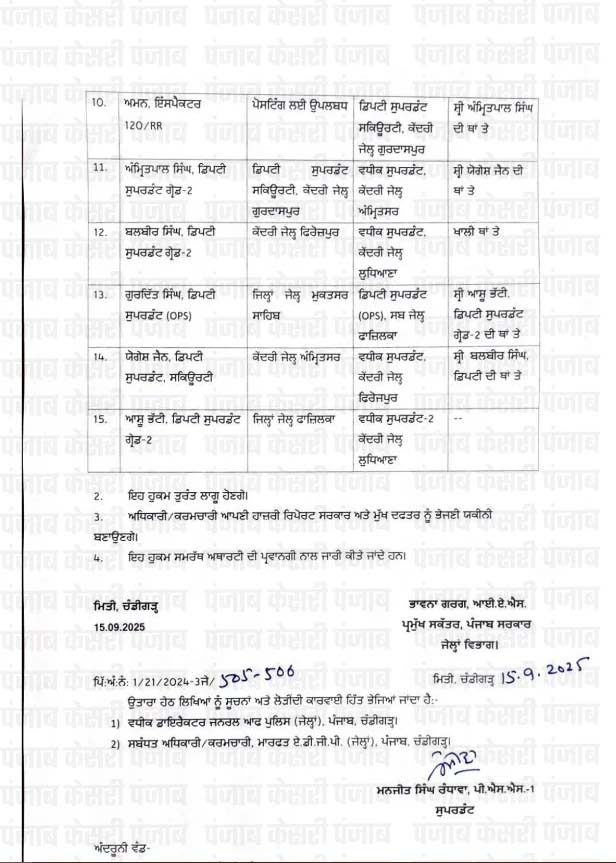 10. ਅਮਨ, ਇੰਸਪੈਕਟਰ ਪੋਸਟਿੰਗ ਲਈ ਉਪਲਬਧ ਡਿਪਟੀ ਸੁਪਰਡੰਟ ਸ੍ਰੀ ਅੰਮ੍ਰਿਤਪਾਲ ਸਿੰਘ
120/RR ਸਕਿਊਰਟੀ, ਕੇਂਦਰੀ ਦੀ ਥਾਂ ਤੇ
ਜੇਲ੍ਹ ਗੁਰਦਾਸਪੁਰ
11. ਅੰਮ੍ਰਿਤਪਾਲ ਸਿੰਘ, ਡਿਪਟੀ ਡਿਪਟੀ ਸੁਪਰਡੰਟ ਵਧੀਕ ਸੁਪਰਡੰਟ, ਸ੍ਰੀ ਯੋਗੇਸ਼ ਜੈਨ ਦੀ
ਸੁਪਰਡੰਟ ਗ੍ਰੇਡ-2 ਸਕਿਊਰਟੀ, ਕੇਂਦਰੀ ਜੇਲ੍ਹ ਕੇਂਦਰੀ ਜੇਲ੍ਹ ਥਾਂ ਤੇ
ਗੁਰਦਾਸਪੁਰ ਅੰਮ੍ਰਿਤਸਰ
12. ਬਲਬੀਰ ਸਿੰਘ, ਡਿਪਟੀ ਕੇਂਦਰੀ ਜੇਲ੍ਹ ਫਿਰੋਜ਼ਪੁਰ ਵਧੀਕ ਸੁਪਰਡੰਟ, ਖਾਲੀ ਥਾਂ ਤੇ
ਸੁਪਰਡੰਟ ਗ੍ਰੇਡ-2 ਕੇਂਦਰੀ ਜੇਲ੍ਹ
ਲੁਧਿਆਣਾ
13. ਗੁਰਦਿੱਤ ਸਿੰਘ, ਡਿਪਟੀ ਜਿਲ੍ਹਾ ਜੇਲ੍ਹ ਮੁਕਤਸਰ ਡਿਪਟੀ ਸੁਪਰਡੰਟ ਸ੍ਰੀ ਆਸ਼ੂ ਭੱਟੀ,
ਸੁਪਰਡੰਟ (OPS) ਸਾਹਿਬ (OPS), ਸਬ ਜੇਲ੍ਹ ਡਿਪਟੀ ਸੁਪਰਡੰਟ
ਫਾਜ਼ਿਲਕਾ ਗ੍ਰੇਡ-2 ਦੀ ਥਾਂ ਤੇ
14. ਯੋਗੇਸ਼ ਜੈਨ, ਡਿਪਟੀ ਕੇਂਦਰੀ ਜੇਲ੍ਹ ਅੰਮ੍ਰਿਤਸਰ ਵਧੀਕ ਸੁਪਰਡੰਟ, ਸ੍ਰੀ ਬਲਬੀਰ ਸਿੰਘ,
ਸੁਪਰਡੰਟ, ਸਕਿਊਰਟੀ ਕੇਂਦਰੀ ਜੇਲ੍ਹ ਡਿਪਟੀ ਦੀ ਥਾਂ ਤੇ
ਫਿਰੋਜ਼ਪੁਰ
15. ਆਸ਼ੂ ਭੱਟੀ, ਡਿਪਟੀ ਸੁਪਰਡੰਟ ਜਿਲ੍ਹਾ ਜੇਲ੍ਹ ਫਾਜ਼ਿਲਕਾ ਵਧੀਕ ਸੁਪਰਡੰਟ-2 --
ਗ੍ਰੇਡ-2 ਕੇਂਦਰੀ ਜੇਲ੍ਹ
ਲੁਧਿਆਣਾ
2. ਇਹ ਹੁਕਮ ਤੁਰੰਤ ਲਾਗੂ ਹੋਣਗੇ।
3. ਅਧਿਕਾਰੀ/ਕਰਮਚਾਰੀ ਆਪਣੀ ਹਾਜ਼ਰੀ ਰਿਪੋਰਟ ਸਰਕਾਰ ਅਤੇ ਮੁੱਖ ਦਫਤਰ ਨੂੰ ਭੇਜਣੀ ਯਕੀਨੀ
ਬਣਾਉਣਗੇ।
4. ਇਹ ਹੁਕਮ ਸਮਰੱਥ ਅਥਾਰਟੀ ਦੀ ਪ੍ਰਵਾਨਗੀ ਨਾਲ ਜਾਰੀ ਕੀਤੇ ਜਾਂਦੇ ਹਨ।
ਮਿਤੀ, ਚੰਡੀਗੜ੍ਹ ਭਾਵਨਾ ਗਰਗ, ਆਈ.ਏ.ਐਸ.
15.09.2025 ਪ੍ਰਮੁੱਖ ਸਕੱਤਰ, ਪੰਜਾਬ ਸਰਕਾਰ
ਜੇਲ੍ਹਾਂ ਵਿਭਾਗ।
ਪਿੱ.ਅੰ.ਨੰ: 1/21/2024-3ਜੇ/ 505-506 ਮਿਤੀ, ਚੰਡੀਗੜ੍ਹ 15.9.2025
ਉਤਾਰਾ ਹੇਠ ਲਿਖਿਆਂ ਨੂੰ ਸੂਚਨਾਂ ਅਤੇ ਲੋੜੀਂਦੀ ਕਾਰਵਾਈ ਹਿੱਤ ਭੇਜਿਆ ਜਾਂਦਾ ਹੈ:-
1) ਵਧੀਕ ਡਾਇਰੈਕਟਰ ਜਨਰਲ ਆਫ ਪੁਲਿਸ (ਜੇਲ੍ਹਾਂ), ਪੰਜਾਬ, ਚੰਡੀਗੜ੍ਹ।
2) ਸਬੰਧਤ ਅਧਿਕਾਰੀ/ਕਰਮਚਾਰੀ, ਮਾਰਫਤ ਏ.ਡੀ.ਜੀ.ਪੀ. (ਜੇਲ੍ਹਾਂ), ਪੰਜਾਬ, ਚੰਡੀਗੜ੍ਹ।
ਮਨਜੀਤ ਸਿੰਘ ਰੰਧਾਵਾ, ਪੀ.ਐਸ.ਐਸ.-1
ਸੁਪਰਡੰਟ
ਅੰਦਰੂਨੀ ਵੰਡ-